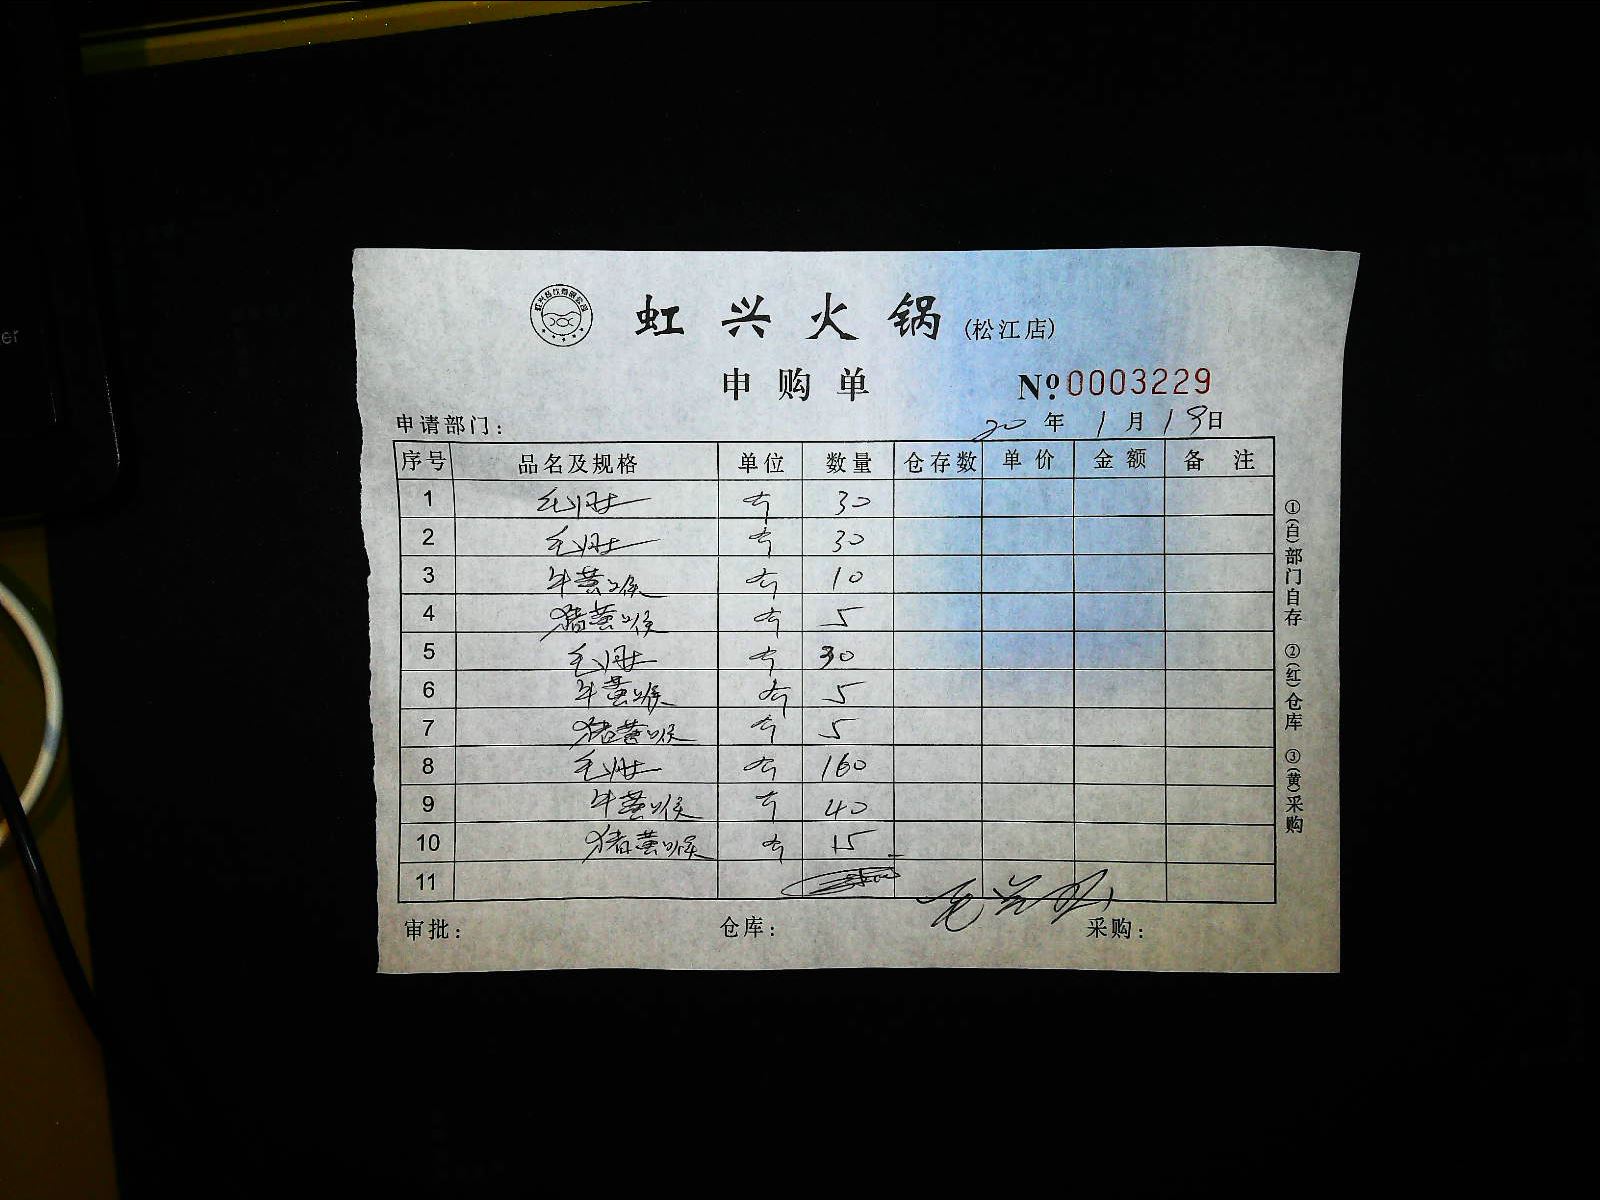 虹兴火锅(松江店)
申购单 Nº 0003229
申请部门: 20年1月19日
序号 品名及规格 单位 数量 仓存数 单价 金额 备注
1 毛肚 斤 30
2 毛肚 斤 30
3 牛黄喉 斤 10
4 猪黄喉 斤 5
5 毛肚 斤 30
6 牛黄喉 斤 5
7 猪黄喉 斤 5
8 毛肚 斤 160
9 牛黄喉 斤 40
10 猪黄喉 斤 15
11
审批: 仓库: 采购:
①(白)部门自存 ②(红)仓库 ③(黄)采购